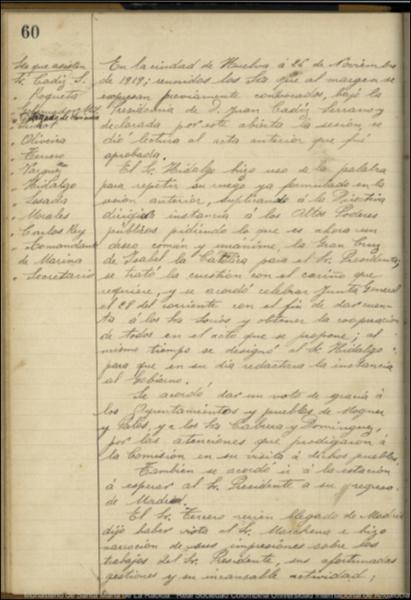 60
Sres que asisten
Sr Cadiz S.
" Poqueto
" Gobernador Mil.
" Oliveira
" Terrero
" Vazquez
" Hidalgo
" Losada
" Morales
" Carlos Rey
" Comandante
de Marina
" Secretario
En la ciudad de Huelva á 26 de Noviembre
de 1919; reunidos los Sres que al margen se
expresan previamente convocados, bajo la
Presidencia de D. Juan Cadiz Serrano y
declarada por este abierta la sesión, se
dió lectura al acta anterior que fué
aprobada.
El Sr. Hidalgo hizo uso de la palabra
para repetir su ruego ya formulado en la
sesión anterior, suplicando á la Directiva
dirigida instancia á los Altos Poderes
públicos pidiendo lo que es ahora un
deseo común y unánime, la Gran Cruz
de Isabel la Católica para el Sr. Presidente,
se trató la cuestión con el cariño que
requiere, y se acordó celebrar Junta General
el 28 del corriente con el fin de dar cuen
ta á los Sres Socios y obtener la cooperación
de todos en el acto que se propone; al
mismo tiempo se designó al Sr. Hidalgo
para que en su dia redactara la instancia
al Gobierno.
Se acordó dar un voto de gracia á
los Ayuntamientos y pueblos de Moguer
y Palos, y a los Sres Cabrera y Dominguez,
por las atenciones que prodigaron á
la Comisión en su visita á dichos pueblos.
También se acordó ir á la estación
á esperar al Sr. Presidente a su regreso
de Madrid.
El Sr. Terrero recien llegado de Madrid
dijo haber visto al Sr. Marchena e hizo
narracion de sus impresiones sobre los
trabajos del Sr. Presidente, sus afortunadas
gestiones y su incansable actividad;